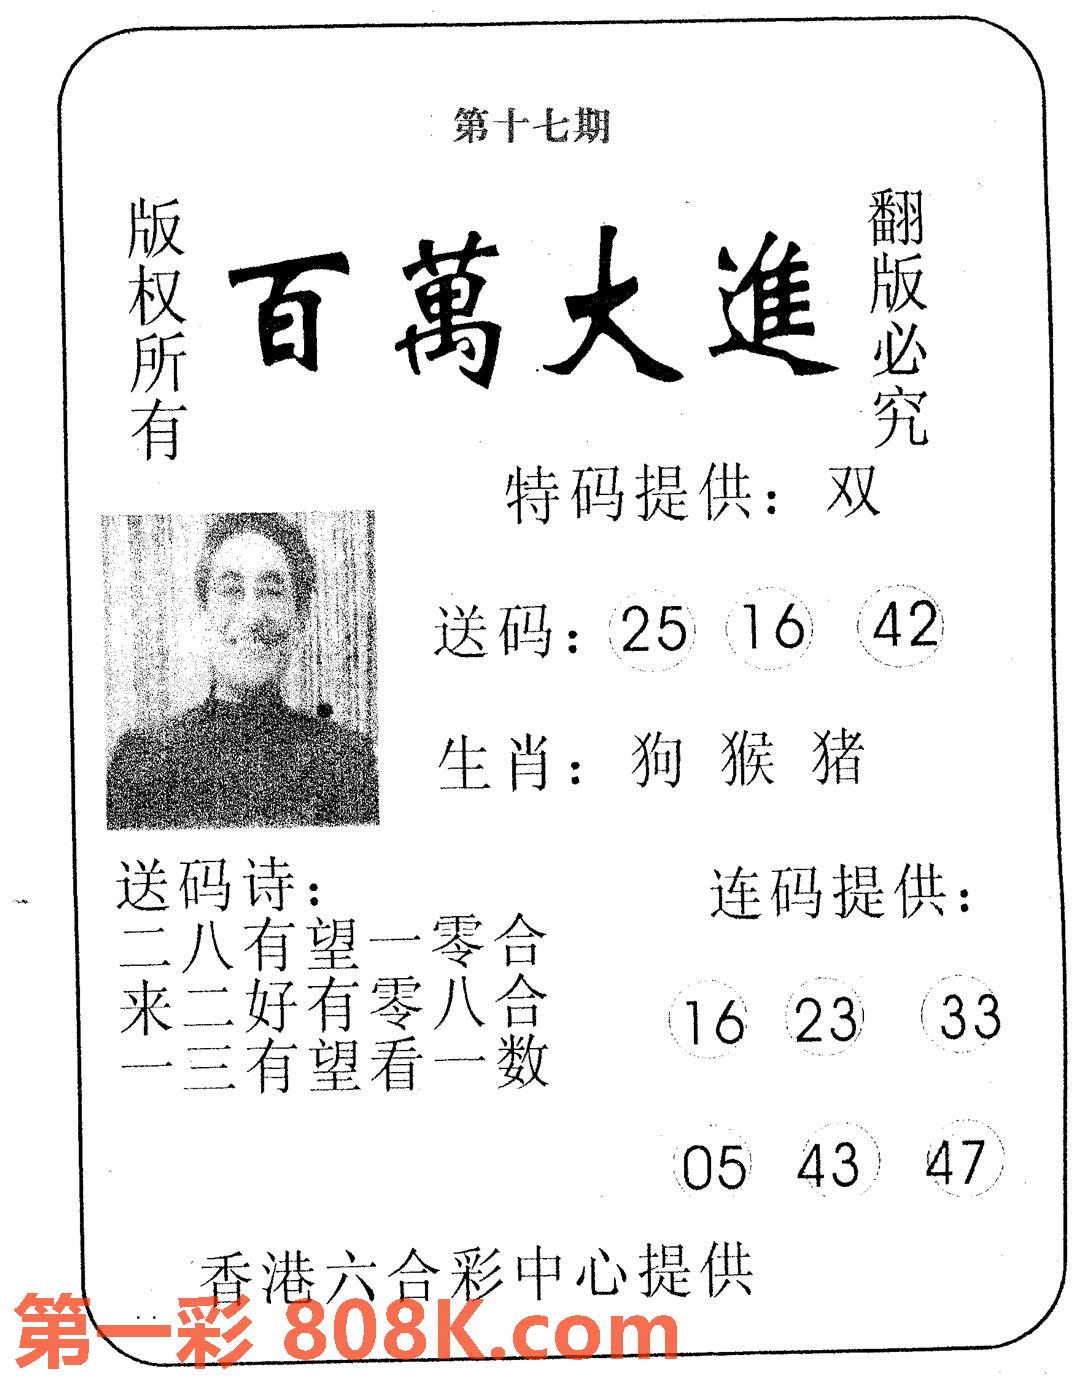 第十七期
版权所有
百萬大進
翻版必究
特码提供：双
送码：25 16 42
生肖：狗 猴 猪
送码诗：
二八有望一零合
来二好有零八合
一三有望看一数
连码提供：
16 23 33
05 43 47
香港六合彩中心提供
第一彩 808K.com